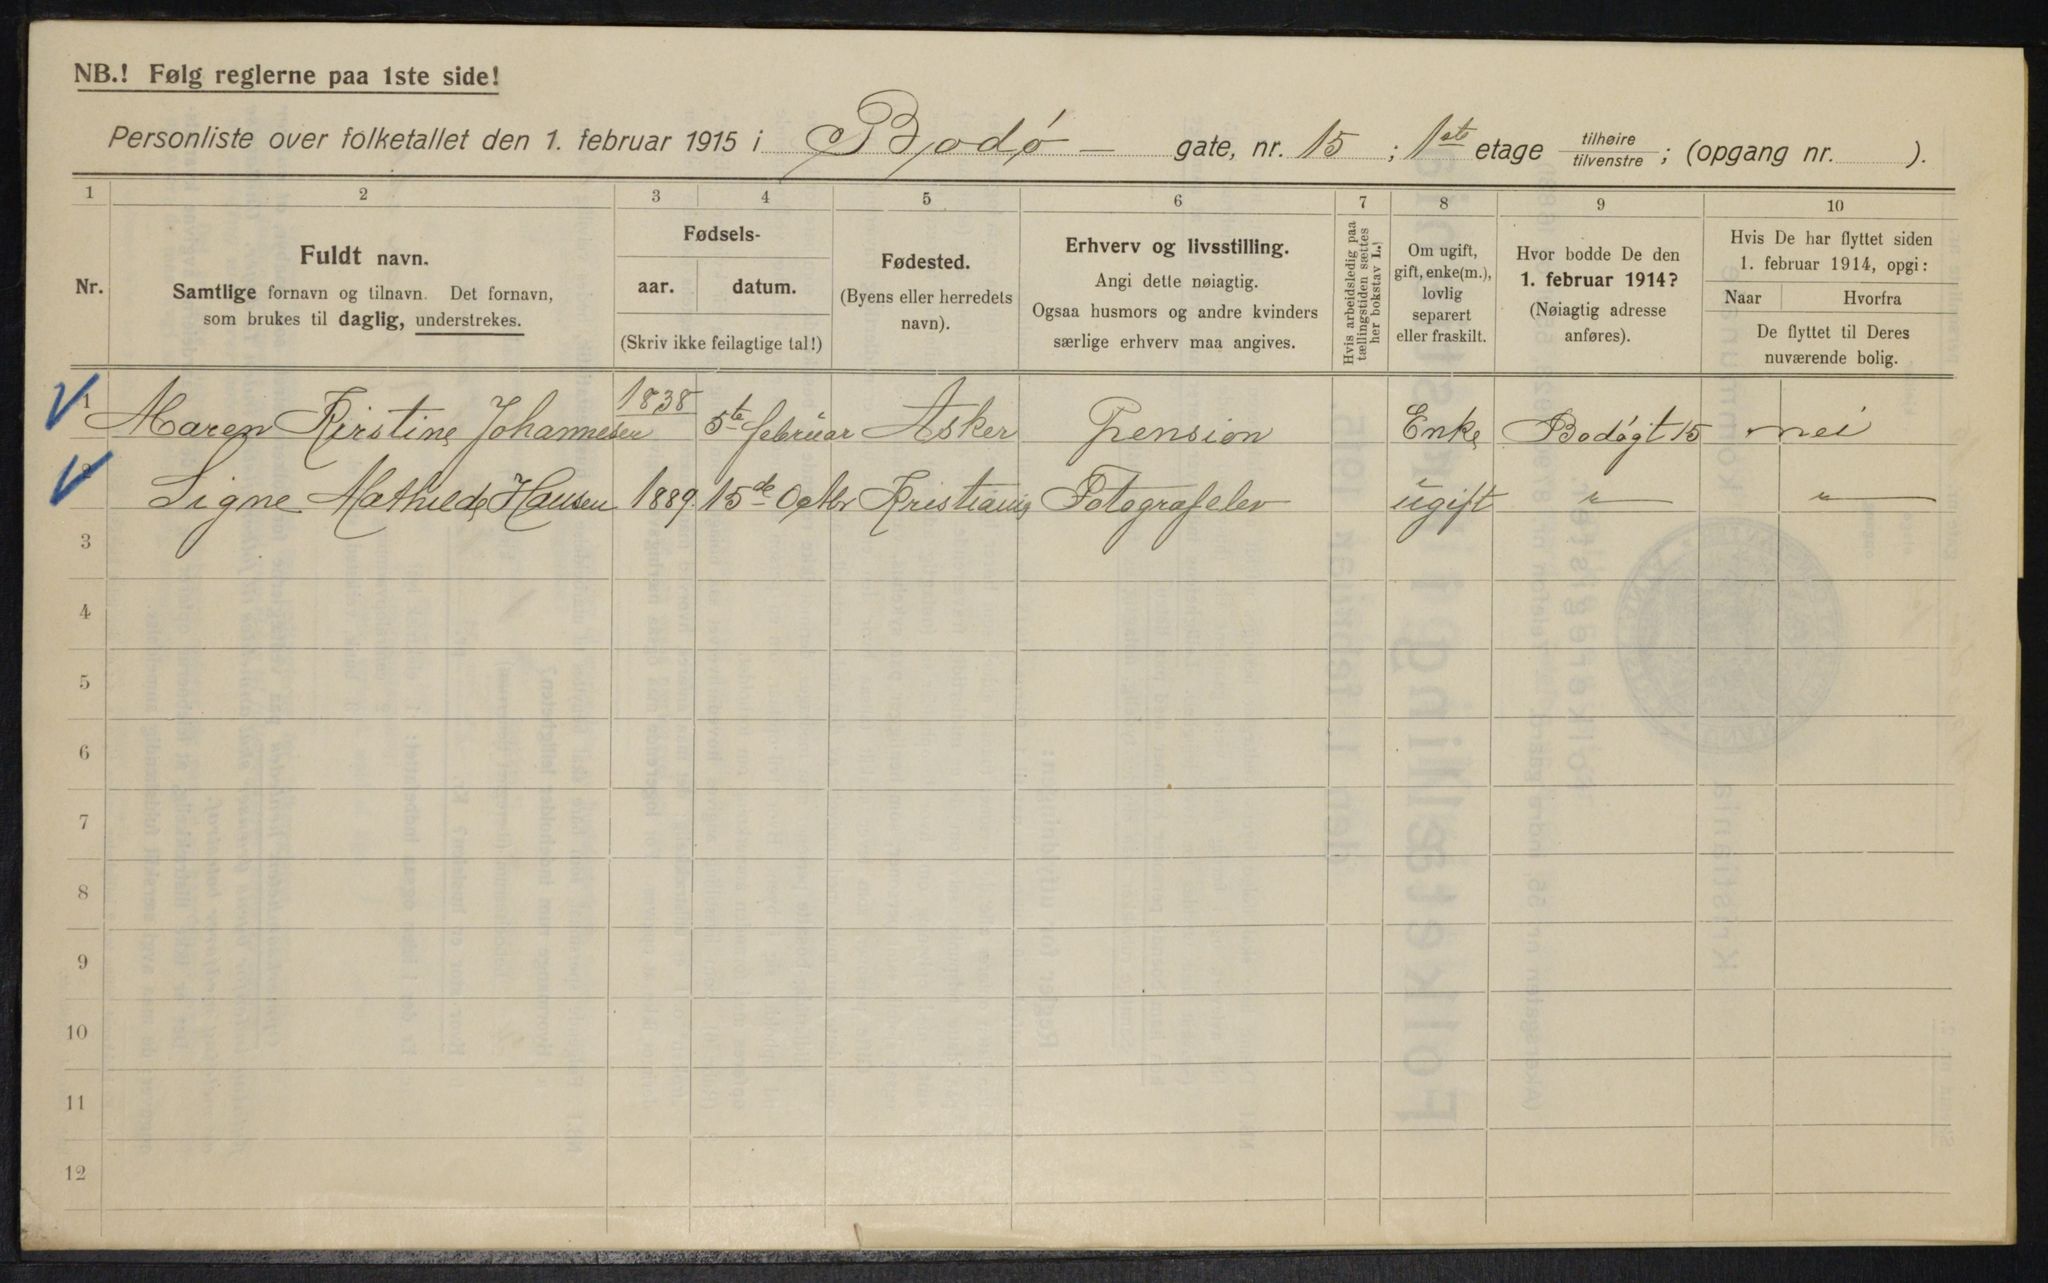 NB.! Følg reglerne paa 1ste side!
Personliste over folketallet den 1. februar 1915 i Bodø — gate, nr. 15 ; 1ste etage tilhøire / tilvenstre ; (opgang nr. ).
1 2 3 4 5 6 7 8 9 10
Nr.
Fuldt navn.
Samtlige fornavn og tilnavn. Det fornavn,
som brukes til daglig, understrekes.
Fødsels-
aar. datum.
(Skriv ikke feilagtige tal!)
Fødested.
(Byens eller herredets
navn).
Erhverv og livsstilling.
Angi dette nøiagtig.
Ogsaa husmors og andre kvinders
særlige erhverv maa angives.
Hvis arbeidsledig paa
tællingstiden sættes
her bokstav L.)
Om ugift,
gift, enke(m.),
lovlig
separert
eller fraskilt.
Hvor bodde De den
1. februar 1914?
(Nøiagtig adresse
anføres).
Hvis De har flyttet siden
1. februar 1914, opgi:
Naar Hvorfra
De flyttet til Deres
nuværende bolig.
1 Maren Kirstine Johannesen 1838 5te februar Asker Pension Enke Bodøgt 15 nei
2 Signe Mathilde Hansen 1889 15de Octbr Kristiania Fotografelev ugift " "
3
4
5
6
7
8
9
10
11
12